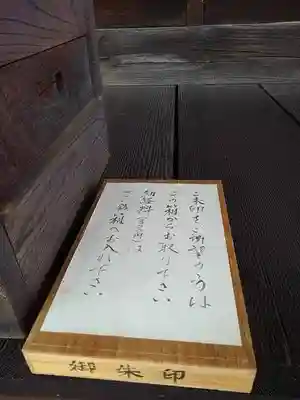 ご朱印をご希望の方は
この箱からお取り下さい
納経料(三百円)は
ご箱へお入れ下さい
御朱印